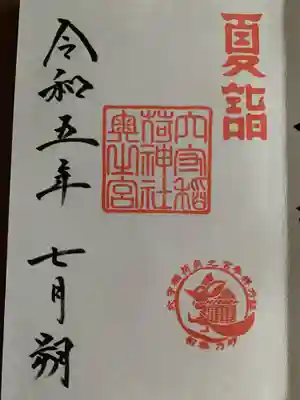 夏詣
穴守稲
荷神社
奥之宮
令和五年 七月朔